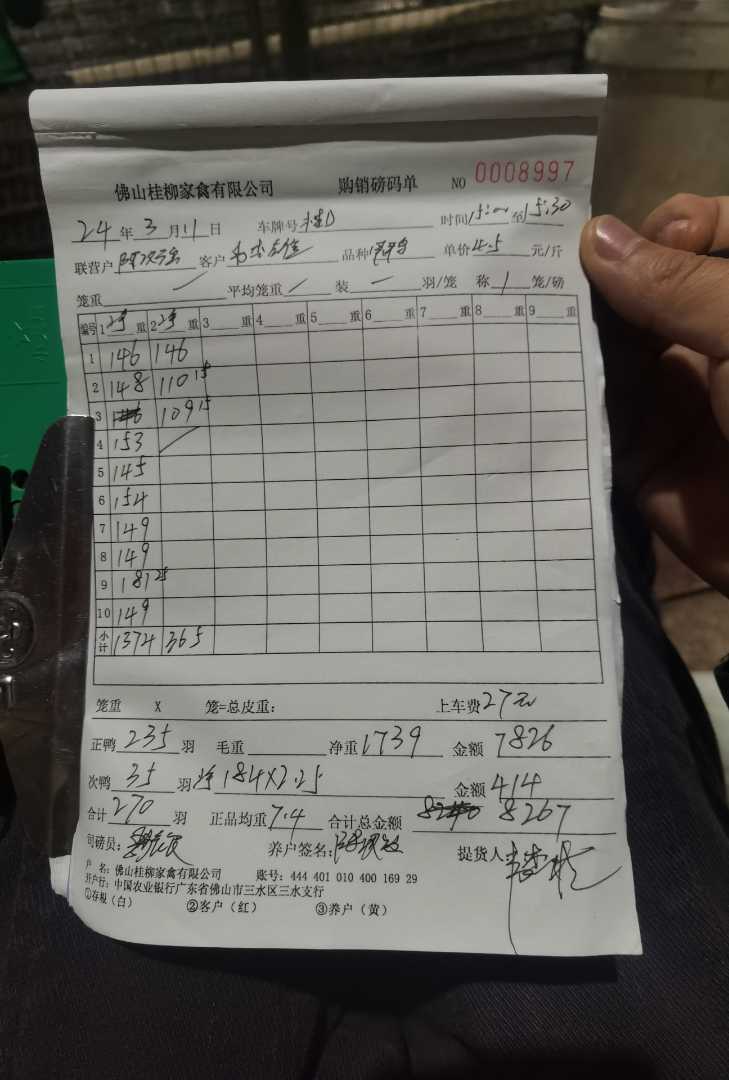 佛山桂柳家禽有限公司 购销磅码单 NO 0008997
24年3月11日 车牌号 时间15:00至15:30
联营户 客户 品种 单价4.5元/斤
笼重 平均笼重 装 羽/笼 称 1 笼/磅
编号 1 25 重 2 25 重 3 重 4 重 5 重 6 重 7 重 8 重 9 重
1 146 146
2 148 110 15
3 109 15
4 153
5 145
6 154
7 149
8 149
9 181 25
10 149
小计 1374 365
笼重 X 笼=总皮重: 上车费27元
正鸭235羽 毛重 净重1739 金额7826
次鸭35羽 净184X2.25 金额414
合计270羽 正品均重7.4 合计总金额 8267
司磅员: 养户签名: 提货人
户 名: 佛山桂柳家禽有限公司 账号: 444 401 010 400 169 29
开户行: 中国农业银行广东省佛山市三水区三水支行
①存根(白) ②客户(红) ③养户(黄)